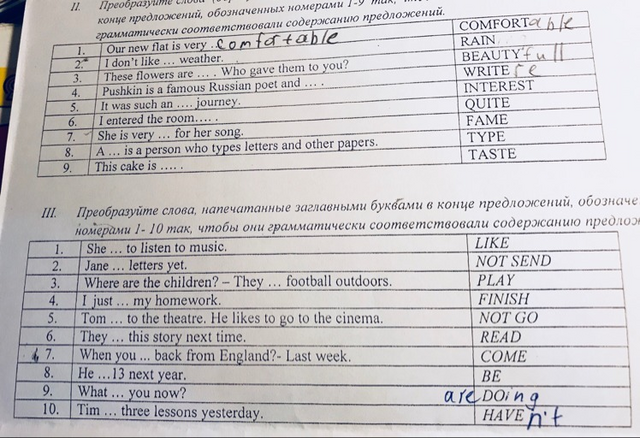 II. Преобразуйте слова
конце предложений, обозначенных номерами 1-9 так,
грамматически соответствовали содержанию предложений.
1. Our new flat is very . comfortable COMFORTable
2. I don't like … weather. RAIN
3. These flowers are … . Who gave them to you? BEAUTYfull
4. Pushkin is a famous Russian poet and … . WRITE re
5. It was such an … journey. INTEREST
6. I entered the room….. . QUITE
7. She is very … for her song. FAME
8. A … is a person who types letters and other papers. TYPE
9. This cake is ….. . TASTE
III. Преобразуйте слова, напечатанные заглавными буквами в конце предложений, обозначе
номерами 1- 10 так, чтобы они грамматически соответствовали содержанию предлож
1. She … to listen to music. LIKE
2. Jane … letters yet. NOT SEND
3. Where are the children? – They … football outdoors. PLAY
4. I just … my homework. FINISH
5. Tom … to the theatre. He likes to go to the cinema. NOT GO
6. They … this story next time. READ
7. When you … back from England?- Last week. COME
8. He …13 next year. BE
9. What … you now? are DOing
10. Tim … three lessons yesterday. HAVE n't